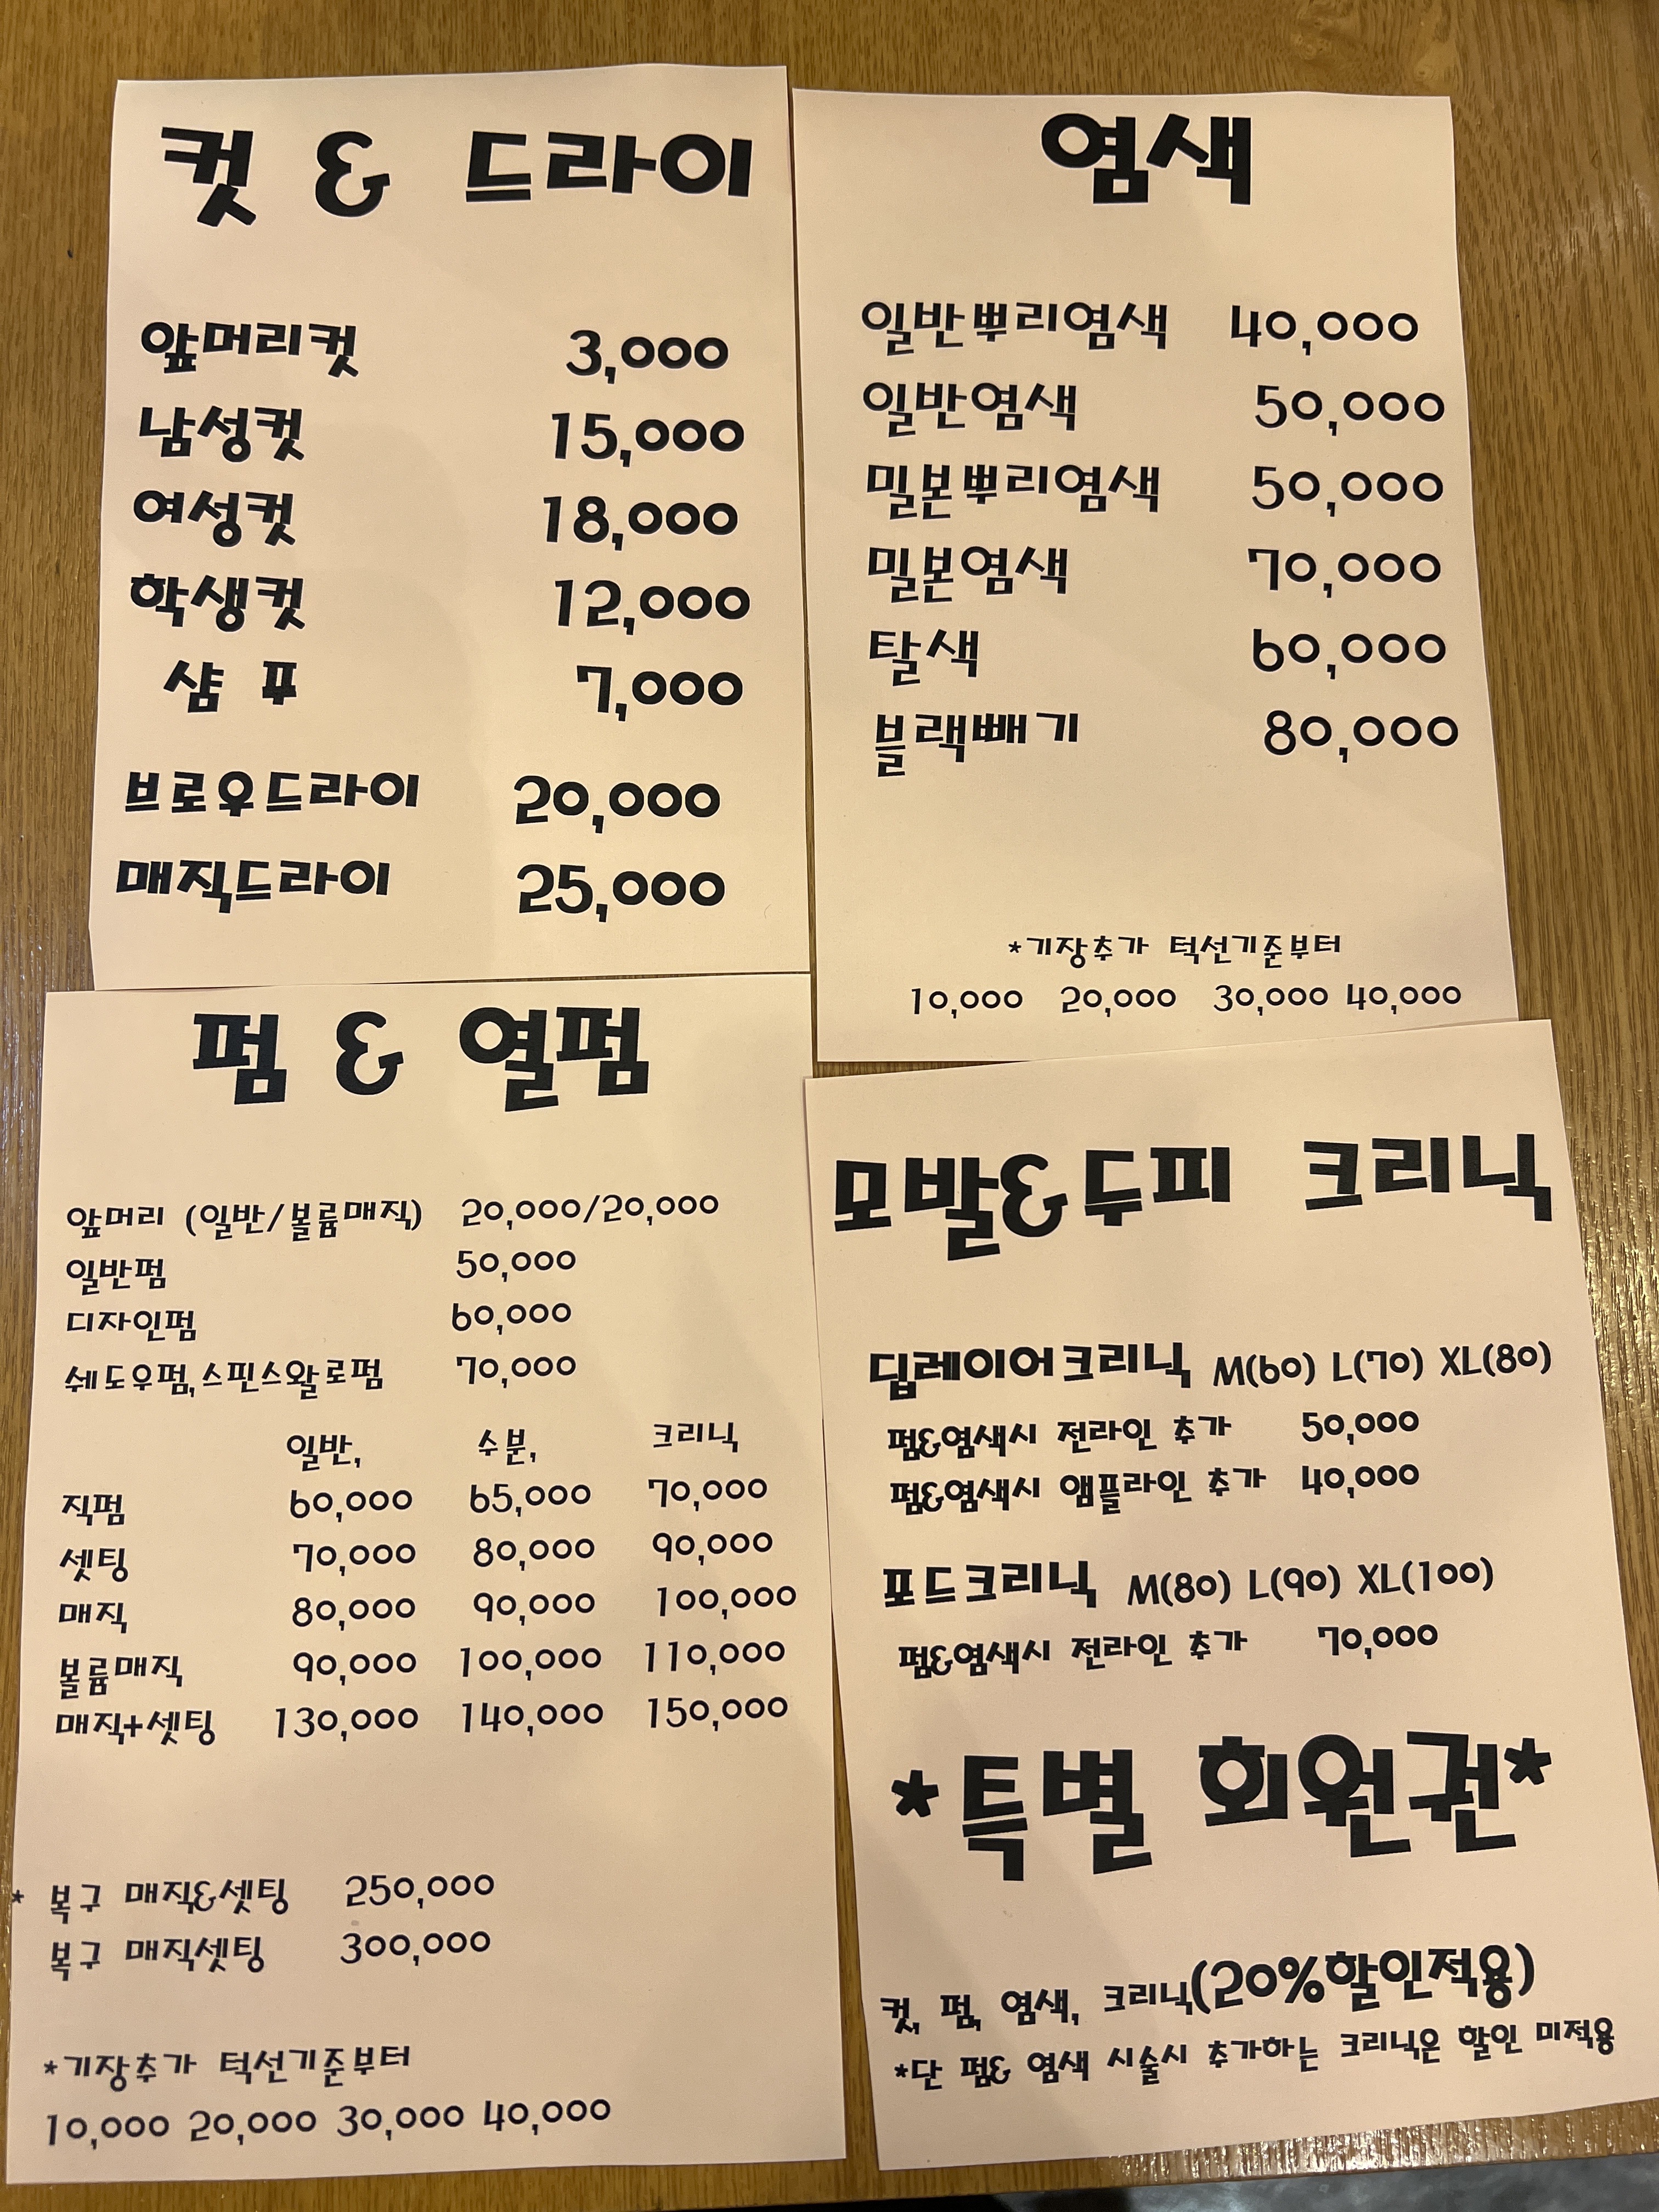 컷 & 드라이
앞머리컷 3,000
남성컷 15,000
여성컷 18,000
학생컷 12,000
샴 푸 7,000
브로우드라이 20,000
매직드라이 25,000
염색
일반뿌리염색 40,000
일반염색 50,000
밀본뿌리염색 50,000
밀본염색 70,000
탈색 60,000
블랙빼기 80,000
*기장추가 턱선기준부터
10,000 20,000 30,000 40,000
펌 & 열펌
앞머리 (일반/볼륨매직) 20,000/20,000
일반펌 50,000
디자인펌 60,000
쉐도우펌,스핀스왈로펌 70,000
일반, 수분, 크리닉
직펌 60,000 65,000 70,000
셋팅 70,000 80,000 90,000
매직 80,000 90,000 100,000
볼륨매직 90,000 100,000 110,000
매직+셋팅 130,000 140,000 150,000
* 복구 매직&셋팅 250,000
복구 매직셋팅 300,000
*기장추가 턱선기준부터
10,000 20,000 30,000 40,000
모발&두피 크리닉
딥레이어크리닉 M(60) L(70) XL(80)
펌&염색시 전라인 추가 50,000
펌&염색시 앰플라인 추가 40,000
포드크리닉 M(80) L(90) XL(100)
펌&염색시 전라인 추가 70,000
*특별 회원권*
컷, 펌, 염색, 크리닉(20%할인적용)
*단 펌& 염색 시술시 추가하는 크리닉은 할인 미적용